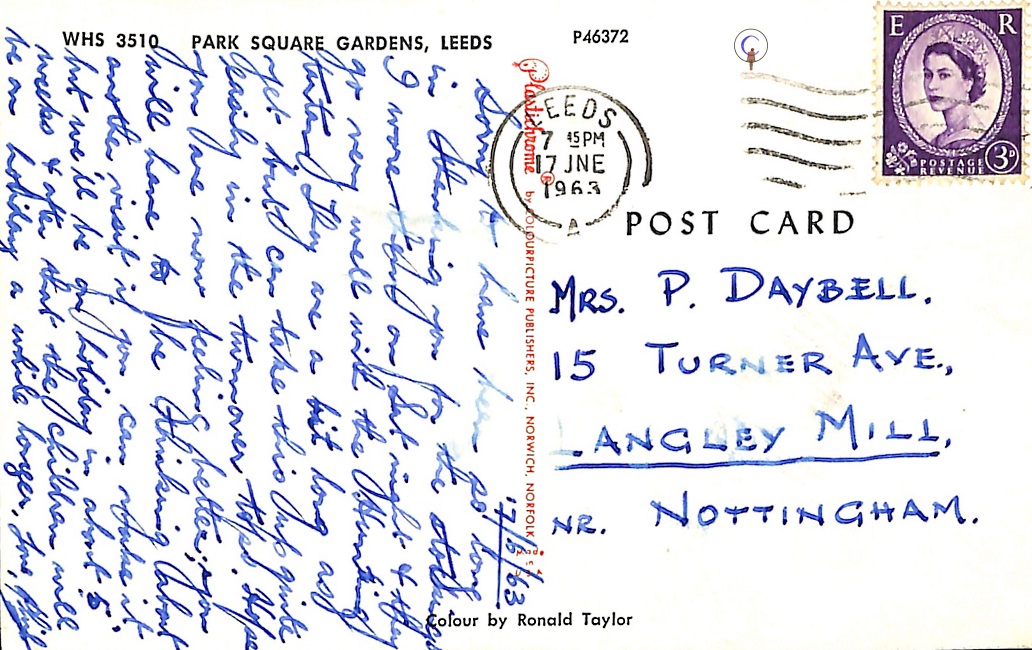 WHS 3510 PARK SQUARE GARDENS, LEEDS
P46372
E R
POSTAGE
REVENUE
3D
LEEDS
7 45PM
17 JNE
1963
A
POST CARD
Plastichrome ® by COLOURPICTURE PUBLISHERS, INC., NORWICH, NORFOLK
17/6/63
Sorry to have been so long
in thanking you for the stockings
I wore them on Sat. night & they
go very well with the Hunting
tartan. They are a bit long as
yet but I can take this up quite
easily in the turnover tops. Hope
you are now feeling better; you
will have to be thinking about
another visit if you can make it
but we'll be on holiday in about 5
weeks & after that the children will
be on holiday a while longer. Love, Phil
MRS. P. DAYBELL.
15 TURNER AVE.,
LANGLEY MILL,
NR. NOTTINGHAM.
Colour by Ronald Taylor